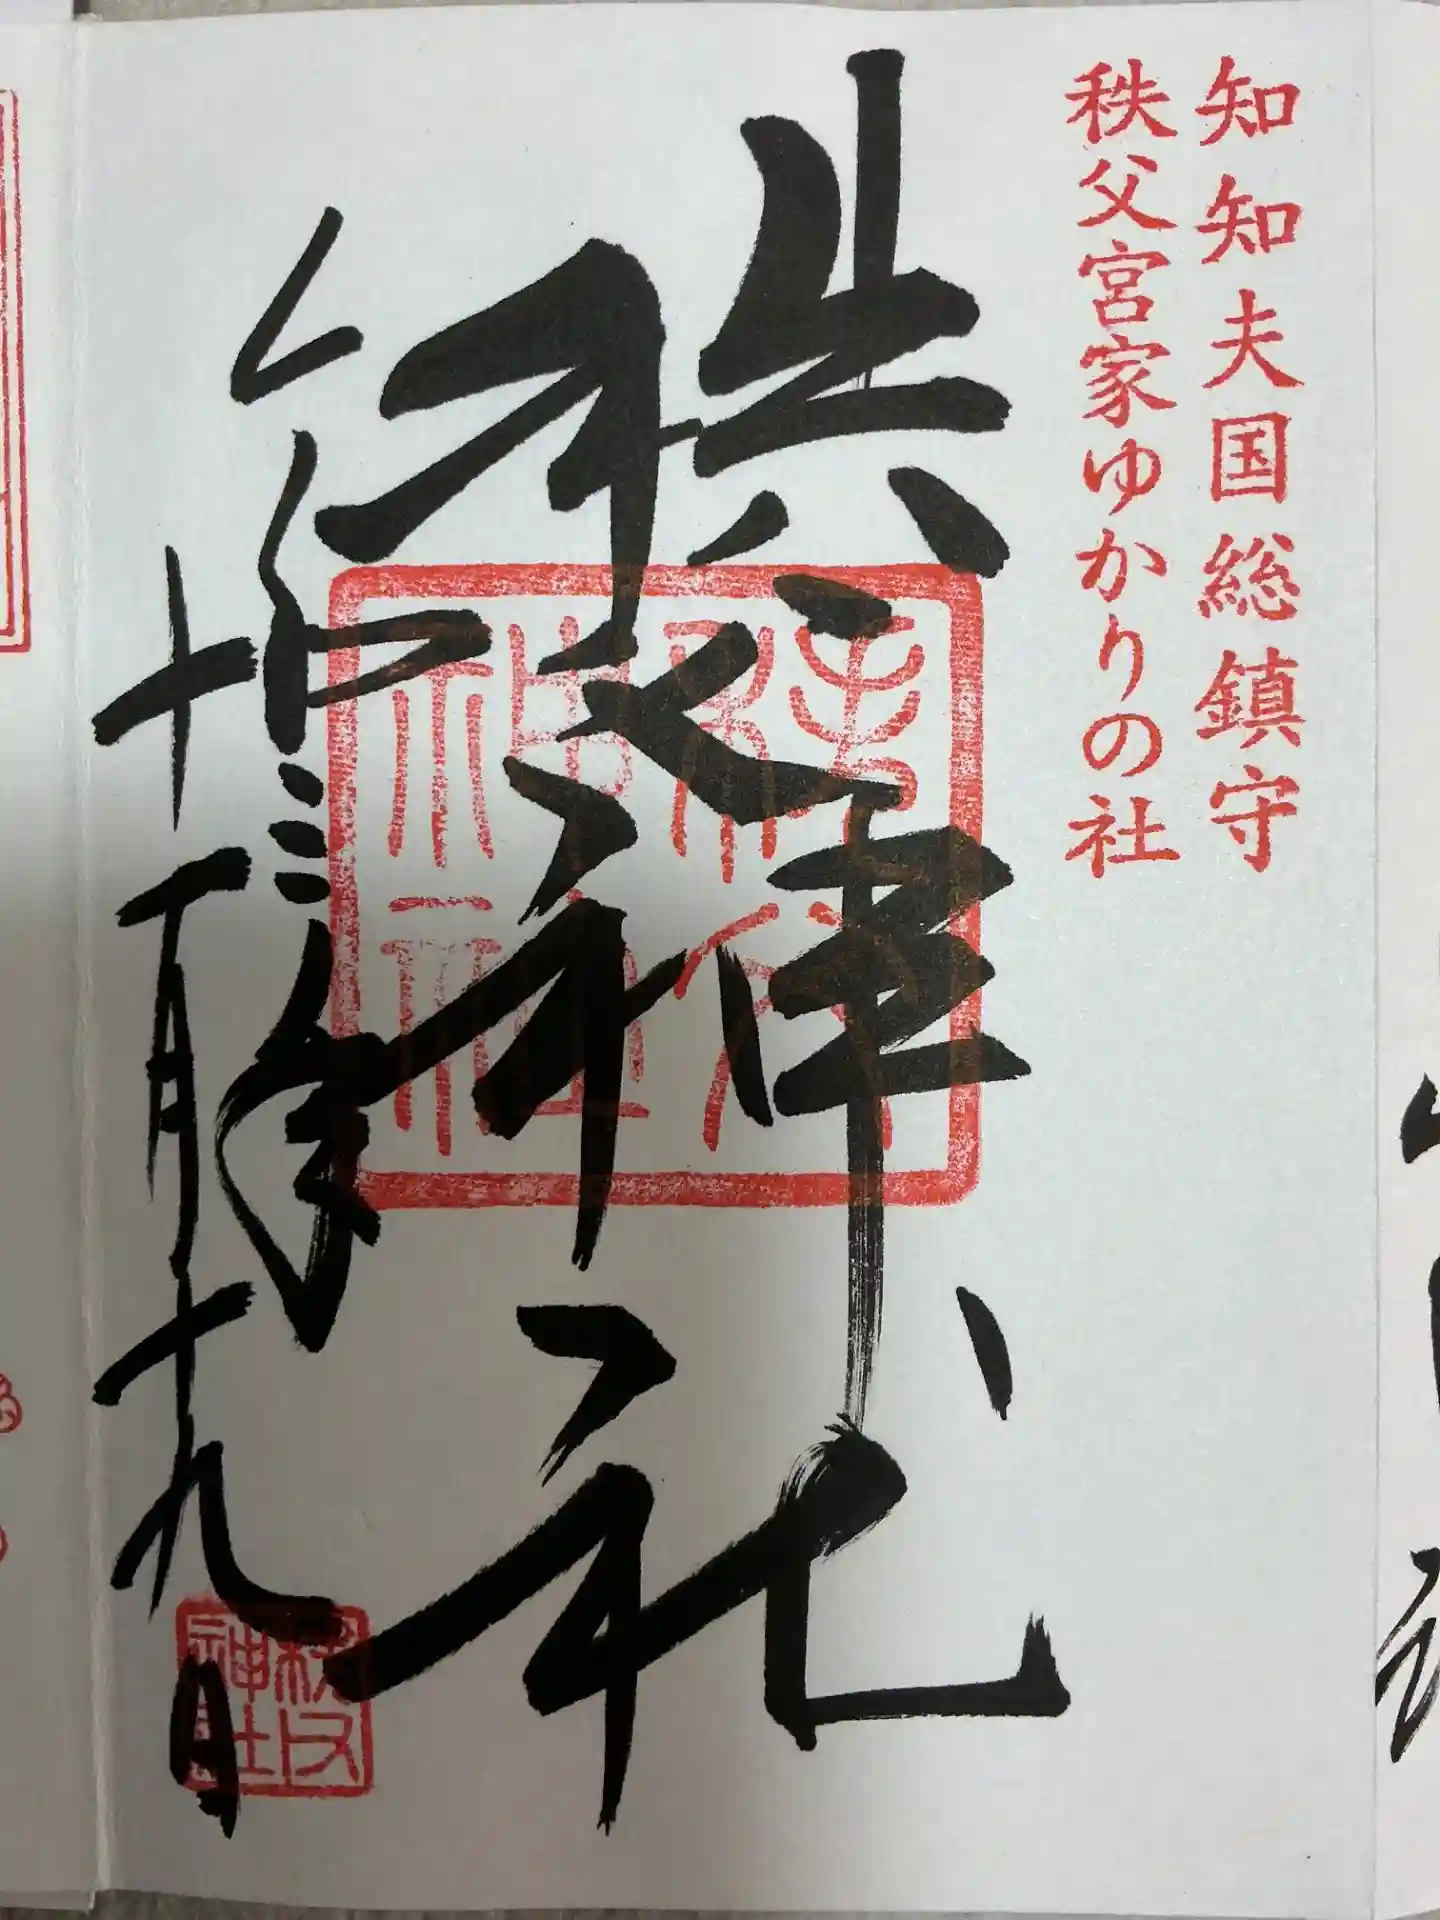 知知夫国総鎮守
秩父宮家ゆかりの社
秩父神社
秩父神社
令和三年
十一月十九日
秩父神社